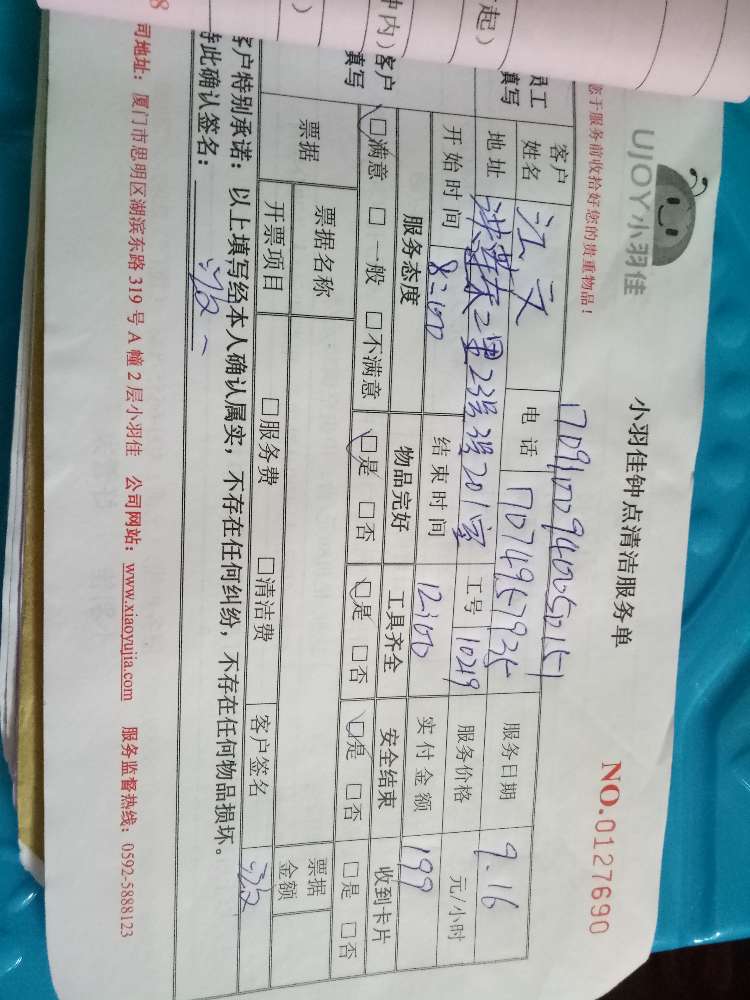 起）
钟内）
）
8
UJOY小羽佳
小羽佳钟点清洁服务单
NO.0127690
您于服务前收拾好您的贵重物品！
员工
填写
客户
姓名
江文
电话
17074957935
服务日期
9.16
地址
2里23号
201室
工号
10219
服务价格
元/小时
开始时间
8:00
结束时间
12:00
实付金额
199
客户
填写
服务态度
物品完好
工具齐全
安全结束
收到卡片
□满意 □一般 □不满意
□是 □否
□是 □否
□是 □否
□是 □否
票据
票据名称
票据
金额
开票项目
□服务费 □清洁费
客户签名
客户特别承诺：以上填写经本人确认属实，不存在任何纠纷，不存在任何物品损坏。
特此确认签名：
司地址：厦门市思明区湖滨东路 319 号 A 幢 2 层小羽佳 公司网站：www.xiaoyujia.com 服务监督热线：0592-5888123